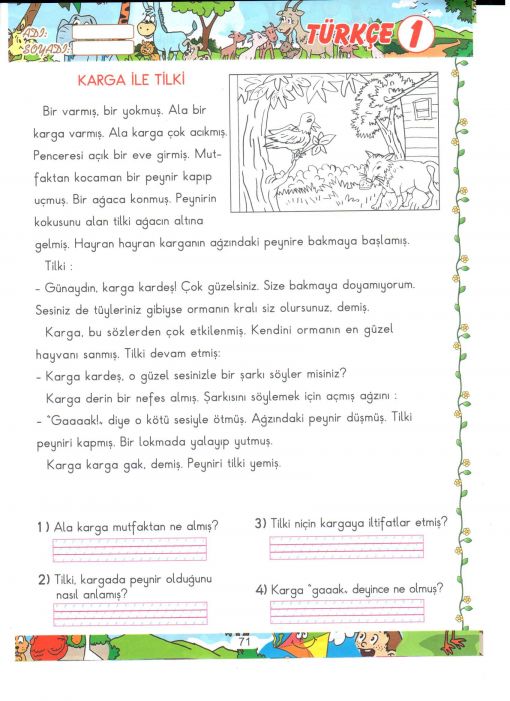 ADI:
SOYADI:
TÜRKÇE 1
KARGA İLE TİLKİ
Bir varmış, bir yokmuş. Ala bir
karga varmış. Ala karga çok acıkmış.
Penceresi açık bir eve girmiş. Mut-
faktan kocaman bir peynir kapıp
uçmuş. Bir ağaca konmuş. Peynirin
kokusunu alan tilki ağacın altına
gelmiş. Hayran hayran karganın ağzındaki peynire bakmaya başlamış.
Tilki :
- Günaydın, karga kardeş! Çok güzelsiniz. Size bakmaya doyamıyorum.
Sesiniz de tüyleriniz gibiyse ormanın kralı siz olursunuz, demiş.
Karga, bu sözlerden çok etkilenmiş. Kendini ormanın en güzel
hayvanı sanmış. Tilki devam etmiş:
- Karga kardeş, o güzel sesinizle bir şarkı söyler misiniz?
Karga derin bir nefes almış. Şarkısını söylemek için açmış ağzını :
- “Gaaaak!„ diye o kötü sesiyle ötmüş. Ağzındaki peynir düşmüş. Tilki
peyniri kapmış. Bir lokmada yalayıp yutmuş.
Karga karga gak, demiş. Peyniri tilki yemiş.
1) Ala karga mutfaktan ne almış?
2) Tilki, kargada peynir olduğunu
nasıl anlamış?
3) Tilki niçin kargaya iltifatlar etmiş?
4) Karga “gaaak„ deyince ne olmuş?
71